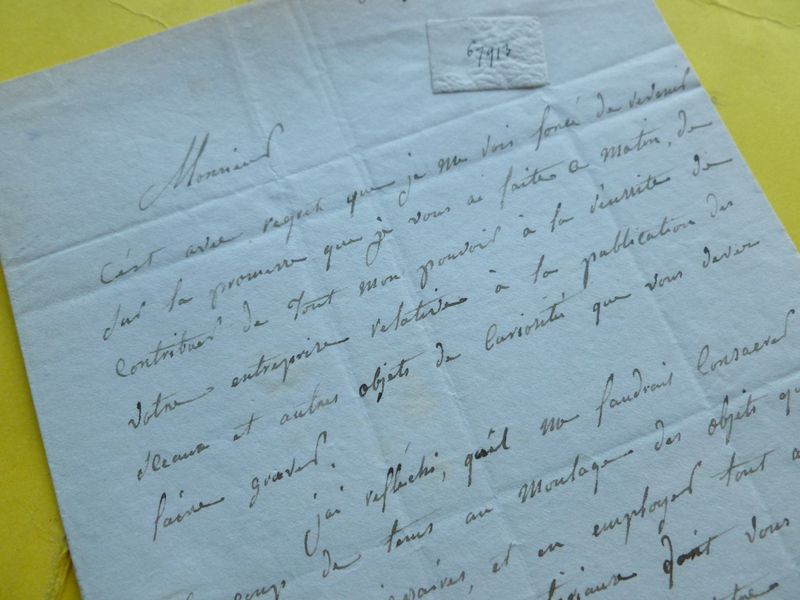 67913
Monsieur
C'est avec regret que je me vois forcé de revenir
sur la promesse que je vous ai faite ce matin, de
contribuer de tout mon pouvoir à la réussite de
votre entreprise relative à la publication des
sceaux et autres objets de curiosité que vous devez
faire graver.
j'ai réfléchi, qu'il me faudrait consacrer
coup de tems au moulage des objets qu
et en employer tout a
dont vous